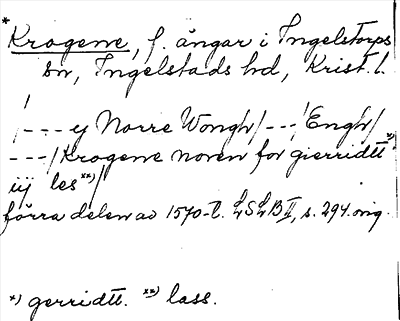 *
Krogene, f. ängar i Ingelstorps
sn, Ingelstads hd, Krist. l.
/---y Norre Wongh/---/Engh/
---/Krogene noren for gierridtt*)
iij les**)/
förra delen av 1570-t. LSLB II, s. 294. orig.
*) gerridtt. **) lass.